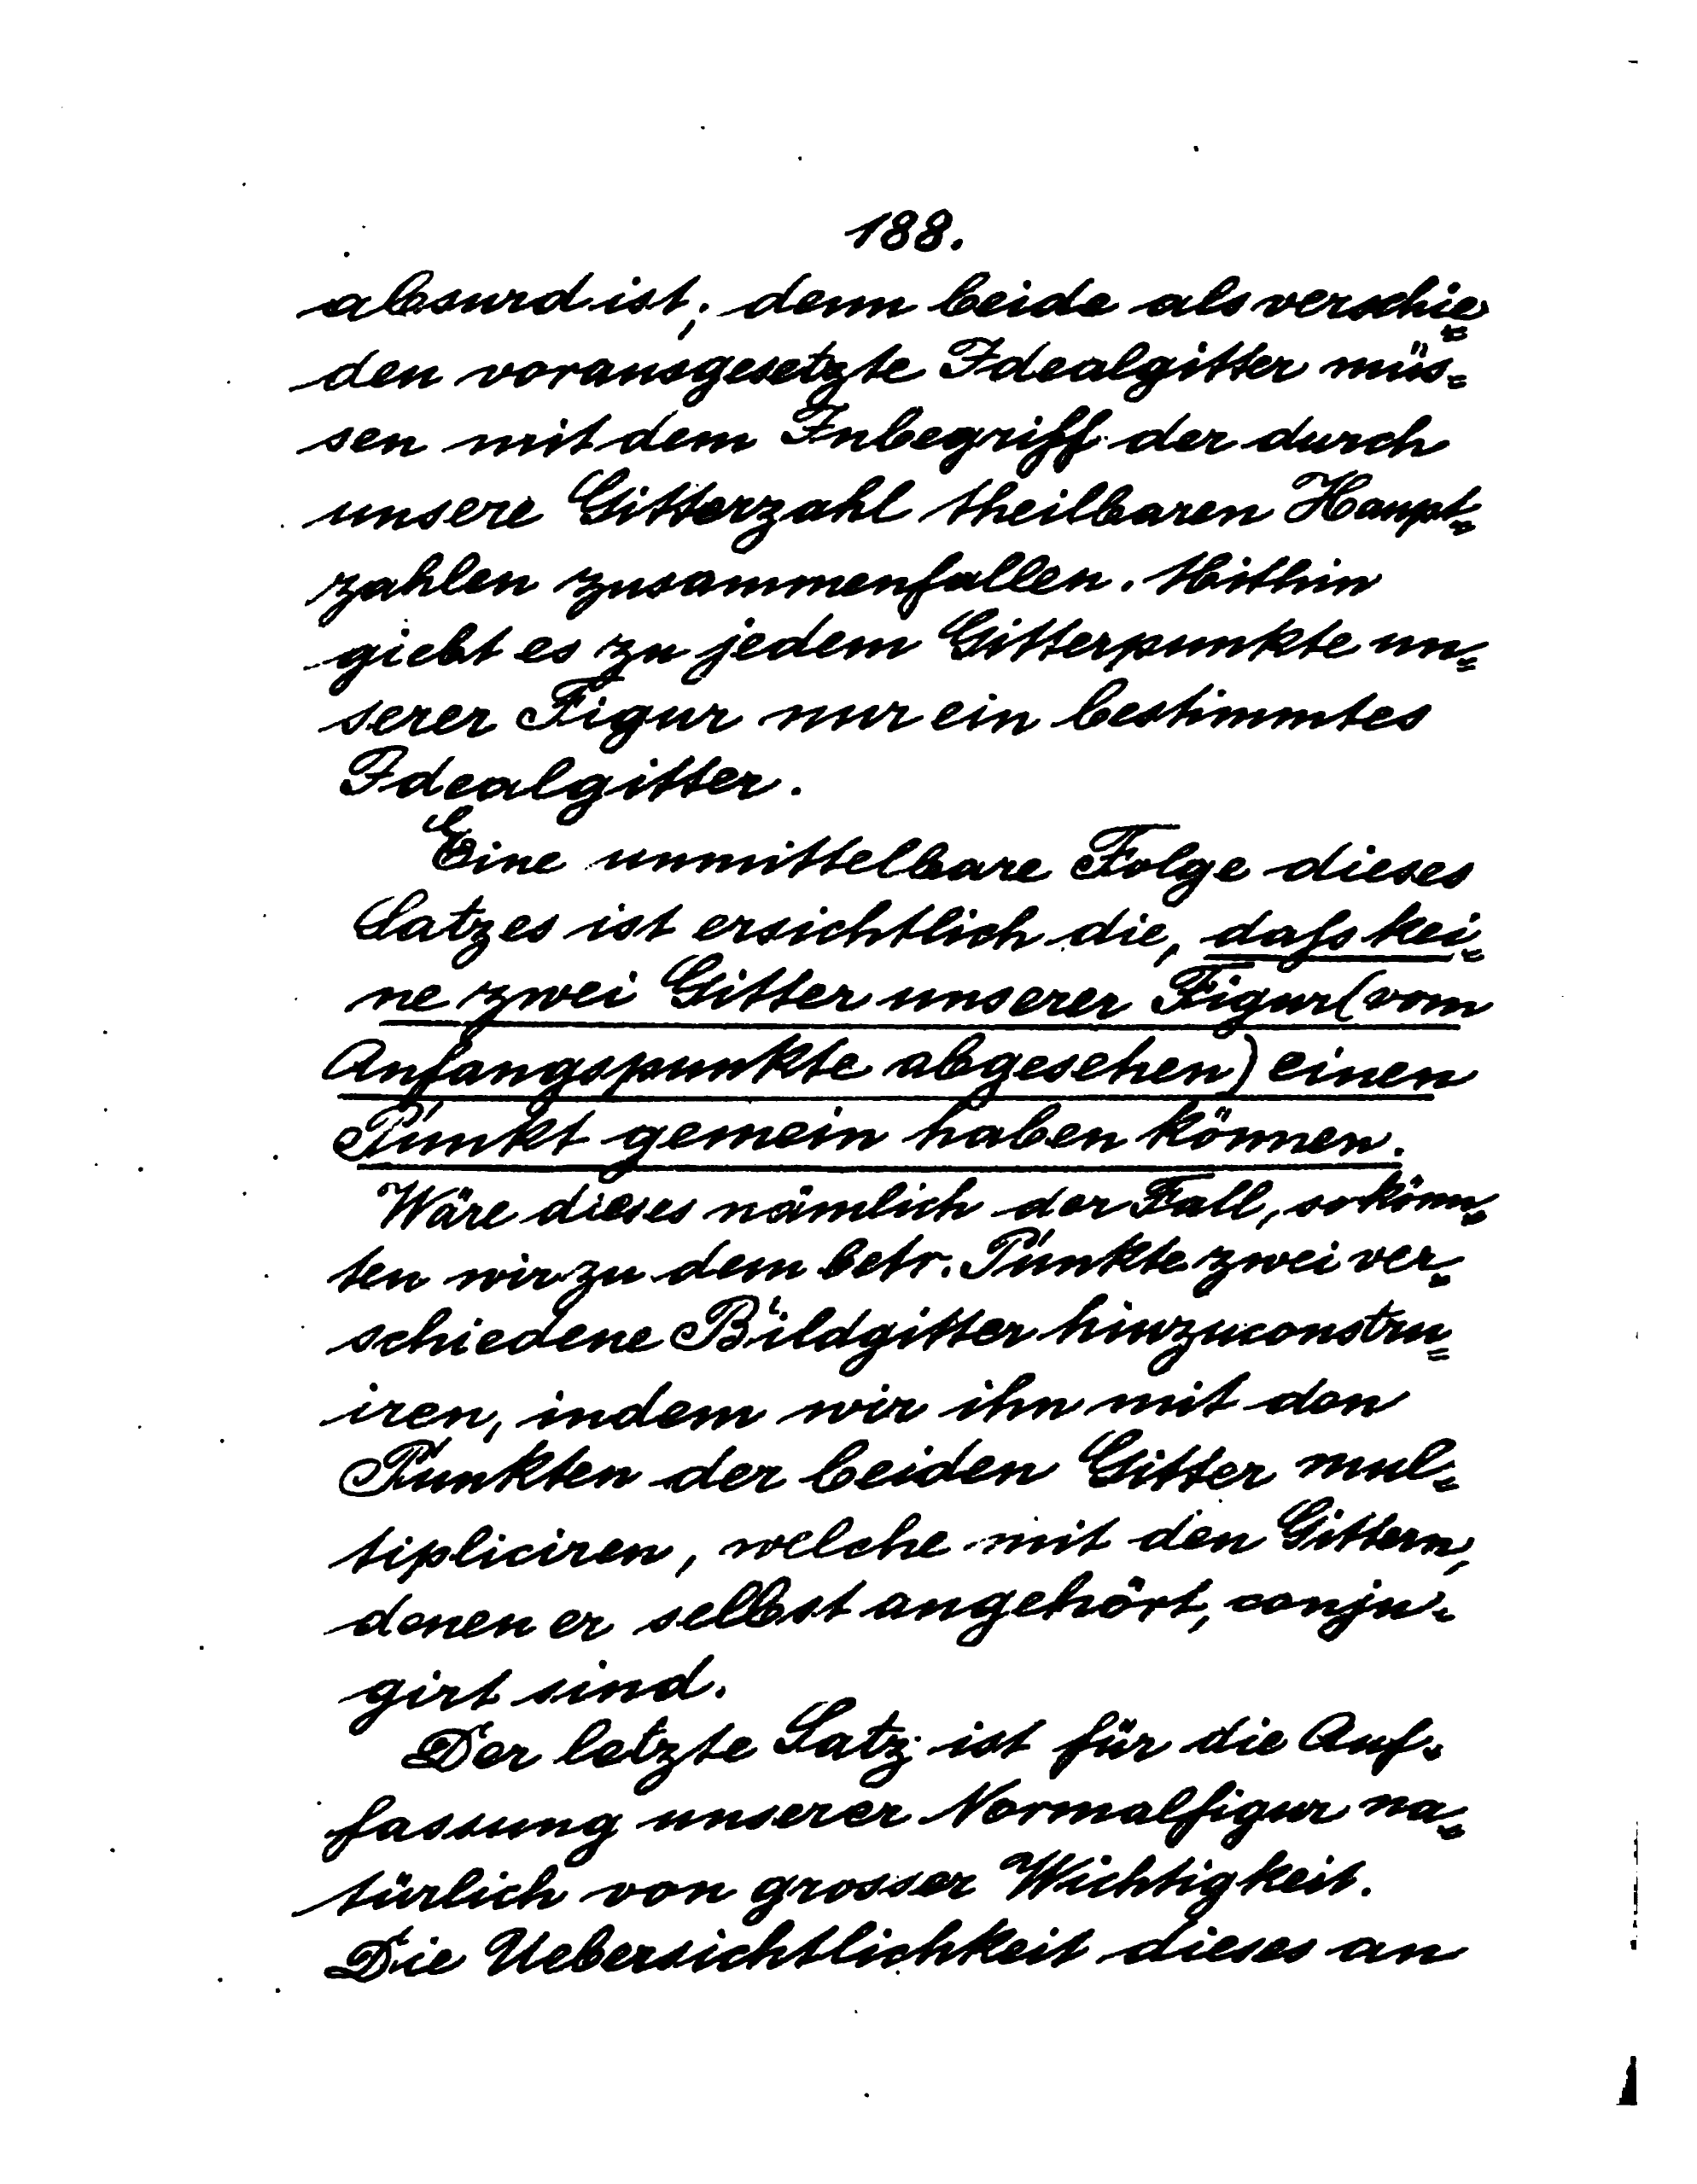 188.
absurd ist; denn beide als verschie=
den vorausgesetzte Idealgitter müs=
sen mit dem Inbegriff der durch
unsere Gitterzahl theilbaren Haupt=
zahlen zusammenfallen. Mithin
giebt es zu jedem Gitterpunkte un=
serer Figur nur ein bestimmtes
Idealgitter.
Eine unmittelbare Folge dieses
Satzes ist ersichtlich die, dafs kei=
ne zwei Gitter unserer Figur (vom
Anfangspunkte abgesehen) einen
Punkt gemein haben können.
Wäre dieses nämlich der Fall, so könn=
ten wir zu dem betr. Punkte zwei ver=
schiedene Bildgitter hinzuconstru=
iren, indem wir ihn mit den
Punkten der beiden Gitter mul=
tipliciren, welche mit den Gittern,
denen er selbst angehört, conju=
girt sind.
Der letzte Satz ist für die Auf=
fassung unserer Normalfigur na=
türlich von grosser Wichtigkeit.
Die Uebersichtlichkeit dieses an